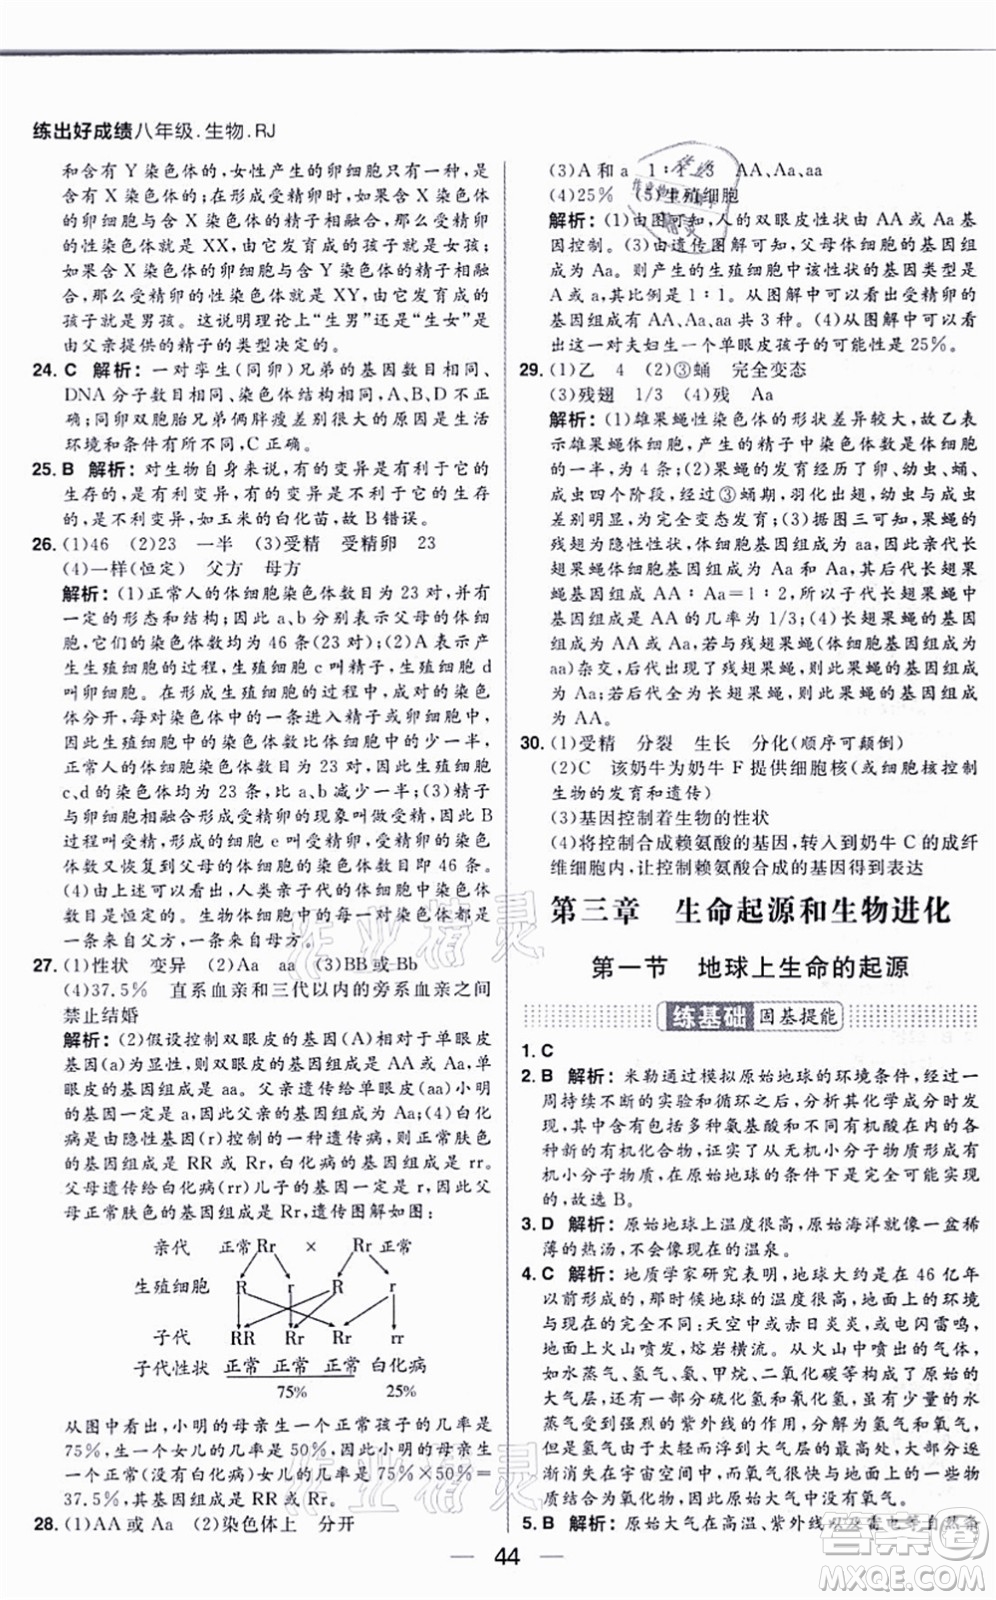 练出好成绩八年级.生物.RJ
和含有 Y 染色体的,女性产生的卵细胞只有一种,是
含有 X 染色体的;在形成受精卵时,如果含有 X 染色体
的卵细胞与含 X 染色体的精子相融合,那么受精卵
的性染色体就是 XX,由它发育成的孩子就是女孩;
如果含 X 染色体的卵细胞与含 Y 染色体的精子相融
合,那么受精卵的性染色体就是 XY,由它发育成的
孩子就是男孩。这说明理论上“生男”还是“生女”是
由父亲提供的精子的类型决定的。
24. C 解析:一对孪生(同卵)兄弟的基因数目相同、
DNA 分子数目相同、染色体数目相同,A、B、D 正
确;同卵双胞胎兄弟俩胖瘦差别很大的原因是生活
环境和条件有所不同,C 正确。
25. B 解析:对生物自身来说,有的变异是有利于它的
生存的,是有利变异,有的变异是不利于它的生存
的,是不利变异,如玉米的白化苗,故 B 错误。
26. (1)46 (2)23 一半 (3)受精 受精卵 23
(4)一样(恒定) 父方 母方
解析:(1)正常人的体细胞染色体数目为 23 对,并有
一定的形态和结构;因此 a、b 分别表示父母的体细
胞,它们的染色体数均为 46 条(23 对);(2)A 表示产
生生殖细胞的过程,生殖细胞 c 叫精子,生殖细胞 d
叫卵细胞。在形成生殖细胞的过程中,成对的染色
体分开,每对染色体中的一条进入精子或卵细胞中,
因此生殖细胞中的染色体数比体细胞中的少一半,
正常人的体细胞染色体数目为 23 对,生殖细胞
c、d 中的染色体数目为 23 条,比 a、b 减少一半;(3)
卵细胞和精子结合形成受精卵的现象叫做受精,故 B
过程叫受精,形成的细胞 e 是受精卵,受精卵的染色
体数又恢复到父母的体细胞的染色体数目即 46 条。
(4)由上述可以看出,人类亲子代的体细胞中染色体
数目是恒定的。生物体细胞中的每一对染色体都是
一条来自父方,一条来自母方。
27. (1)性状 变异 (2)Aa aa (3)BB或Bb
(4)37.5% 直系血亲和三代以内的旁系血亲之间
禁止结婚
解析:(2)假设控制双眼皮的基因(A)对单眼皮的
基因(a)为显性,则双眼皮的基因组成是 AA 或 Aa,单
眼皮的基因组成是 aa。父亲遗传给单眼皮(aa)小明
的基因一定是 a,因此父亲的基因组成是 Aa;(4)白化
病是由隐性基因(r)控制的一种遗传病,正常肤色的
基因组成是 RR 或 Rr,白化病的基因组成是 rr。
父母遗传给白化病(rr)儿子的基因一定是 r,因此父
母正常肤色的基因组成是 Rr,遗传图解如图:
亲代 正常Rr × Rr正常
生殖细胞 R r R r
子代 RR Rr Rr rr
子代性状 正常 正常 正常 白化病
75% 25%
从图中看出,小明的母亲生一个正常孩子的几率是
75%,生一个女儿的几率是 50%,小明的母亲生一个
正常(没有白化病)女儿的几率是 75%×50%=
37.5%,其基因组成是 RR 或 Rr。
28. (1)AA 或 Aa (2)染色体上 分开
(3)A和 a 1∶1 3 AA、Aa、aa
(4)25% (5)生殖细胞
解析:(1)由图可知,人的双眼皮性状由 AA 或 Aa 基
因控制。(3)由遗传图解可知,父母体细胞的基因组
成为 Aa。则产生的生殖细胞中该性状的基因类型是
A 或 a,其比例是 1∶1。从图解中可以看出受精卵的
基因组成有 AA、Aa、aa 共 3 种。(4)从图解中可以看
出这一对夫妇生一个单眼皮孩子的可能性是 25%。
29. (1)乙 4 (2)③蛹 完全变态
(3)残翅 1/3 (4)残 Aa
解析:(1)雄果蝇性染色体的形状差异较大,故乙表
示雄果蝇体细胞,产生的精子中染色体数是体细胞
的一半,为 4 条;(2)果蝇的发育经历了卵、幼虫、蛹、
成虫四个阶段,经过③蛹期,羽化出翅,幼虫与成虫
差别明显,为完全变态发育;(3)据图三可知,果蝇的
残翅为隐性性状,基因组成为 aa,因此亲代长翅果
蝇体细胞基因组成为 Aa,因此子代长翅果
蝇基因组成为 AA∶Aa=1∶2,所以子代长翅果蝇
基因组成为 AA 的几率为 1/3;(4)长翅果蝇的基因
组成为 AA 或 Aa,若与残翅果蝇(体细胞基因组成
aa)杂交,后代出现了残翅果蝇,则此果蝇的基因组
成为 Aa;若后代全部为长翅果蝇,则此果蝇的基因组
成为 AA。
30. (1)受精 分裂 生长 分化(顺序可颠倒)
(2)C 该奶牛为奶牛 F 提供细胞核(或细胞核控制
生物的发育和遗传)
(3)基因控制着生物的性状
(4)将控制合成赖氨酸的基因,转入到奶牛 C 的成纤
维细胞内,让控制赖氨酸合成的基因得到表达
第三章 生命起源和生物进化
第一节 地球上生命的起源
练基础 固基提能
1. C
2. B 解析:米勒通过模拟原始地球的环境条件,经过一
周持续不断的实验和循环,分析其化学成分时发现,
其中含有包括多种氨基酸和有机酸在内的多种
有机化合物,证实了从无机小分子物质生成有
机小分子物质,在原始地球的条件下是完全可以实现
的,故选 B。
3. D 解析:原始地球上温度很高,原始海洋就像一盆稀
薄的热汤,不可能有现在的温泉。
4. C 解析:地质学家研究表明,地球大约是在 46 亿年
以前形成的,那时候地球的温度很高,地面上的环境
与现在的完全不同:天空中或赤日炎炎,或电闪雷鸣,
地面上火山喷发,熔岩横流。从火山中喷出的气体,
如水蒸气、氢气、氨、甲烷、二氧化碳等构成了原始的
大气层,还有一部分硫化氢和氰化氢,虽有少量的水
蒸气受到强烈的紫外线的作用,分解为氢气和氧气,
但是氢气因质量太轻而浮到大气层的最高处,大部分逐
渐消失在宇宙空间中,而氧气很快与地面上的一些物
质结合为氧化物,因此原始大气中没有氧气。
5. B 解析:原始大气在高温、紫外线以及雷电等自然条
44
作业精灵
作业精灵
答案圈
MXQE.COM